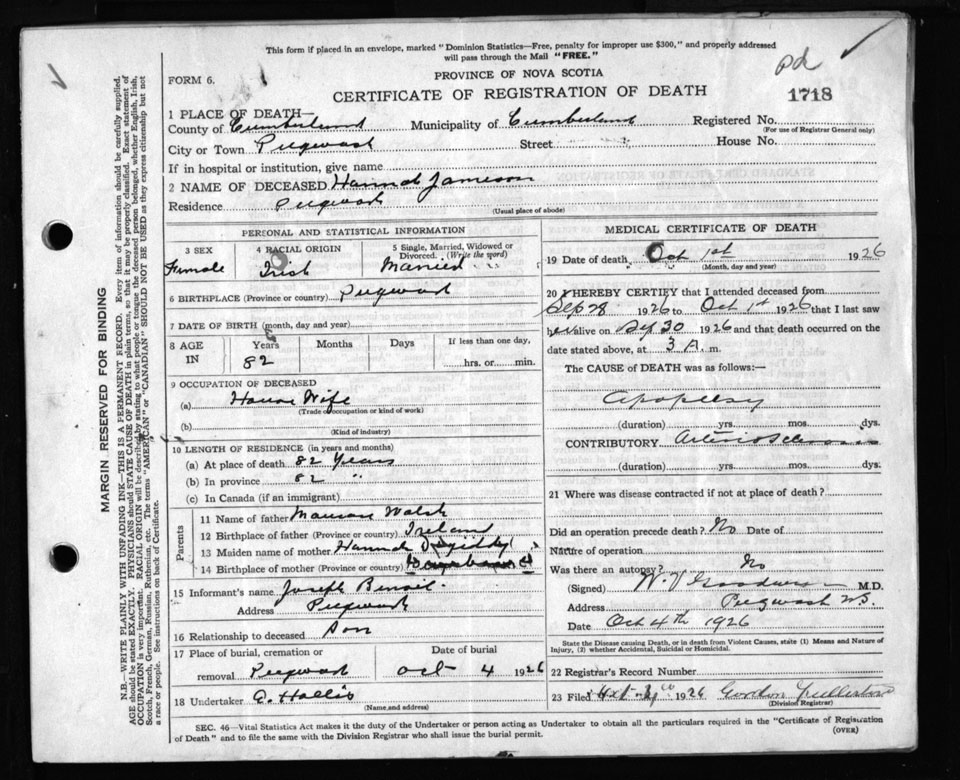 This form if placed in an envelope, marked "Dominion Statistics—Free, penalty for improper use $300," and properly addressed
will pass through the Mail "FREE."
pd
FORM 6.
PROVINCE OF NOVA SCOTIA
CERTIFICATE OF REGISTRATION OF DEATH
1718
1 PLACE OF DEATH—
County of Cumberland Municipality of Cumberland Registered No.
(For use of Registrar General only)
City or Town Pugwash Street House No.
If in hospital or institution, give name
2 NAME OF DECEASED Hannah Jameson
Residence Pugwash
(Usual place of abode)
PERSONAL AND STATISTICAL INFORMATION
3 SEX
Female
4 RACIAL ORIGIN
Irish
5 Single, Married, Widowed or
Divorced. (Write the word)
Married
6 BIRTHPLACE (Province or country) Pugwash
7 DATE OF BIRTH (month, day and year)
8 AGE
IN
Years
82
Months
Days
If less than one day,
hrs. or min.
9 OCCUPATION OF DECEASED
(a) House Wife
(Trade occupation or kind of work)
(b)
(Kind of industry)
10 LENGTH OF RESIDENCE (in years and months)
(a) At place of death 82 Years
(b) In province 82 "
(c) In Canada (if an immigrant)
Parents
11 Name of father Walsh
12 Birthplace of father (Province or country) Ireland
13 Maiden name of mother Hannah
14 Birthplace of mother (Province or country)
15 Informant's name Joseph
Address Pugwash
16 Relationship to deceased Son
17 Place of burial, cremation or
removal Pugwash
Date of burial
Oct 4 1926
18 Undertaker C. Hollis
(Name and address)
MEDICAL CERTIFICATE OF DEATH
19 Date of death Oct 1st 1926
(Month, day and year)
20 I HEREBY CERTIFY that I attended deceased from
Sep 28 1926 to Oct 1st 1926 that I last saw
her alive on Sep 30 1926 and that death occurred on the
date stated above, at 3 A. m.
The CAUSE of DEATH was as follows:—
Apoplexy
(duration) yrs. mos. dys.
CONTRIBUTORY Arteriosclerosis
(duration) yrs. mos. dys.
21 Where was disease contracted if not at place of death?
Did an operation precede death? No Date of
Nature of operation
Was there an autopsy? No
(Signed) M.D.
Address Pugwash N.S.
Date Oct 4th 1926
State the Disease causing Death, or in death from Violent Causes, state (1) Means and Nature of
Injury, (2) whether Accidental, Suicidal or Homicidal.
22 Registrar's Record Number
23 Filed 1926 Gordon Fullerton
(Division Registrar)
SEC. 46—Vital Statistics Act makes it the duty of the Undertaker or person acting as Undertaker to obtain all the particulars required in the "Certificate of Registration
of Death" and to file the same with the Division Registrar who shall issue the burial permit.
(OVER)
MARGIN RESERVED FOR BINDING
N.B.—WRITE PLAINLY WITH UNFADING INK—THIS IS A PERMANENT RECORD. Every item of information should be carefully supplied.
AGE should be stated EXACTLY. PHYSICIANS should STATE CAUSE OF DEATH in plain terms, so that it may be properly classified. Exact statement of
OCCUPATION is very important. RACIAL ORIGIN will be described by stating to what people or tongue the deceased person belonged, whether English, Irish,
Scotch, French, German, Russian, Ruthenian, etc. The terms "AMERICAN" or "CANADIAN" SHOULD NOT BE USED as they express citizenship but not
a race or people. See instructions on back of Certificate.